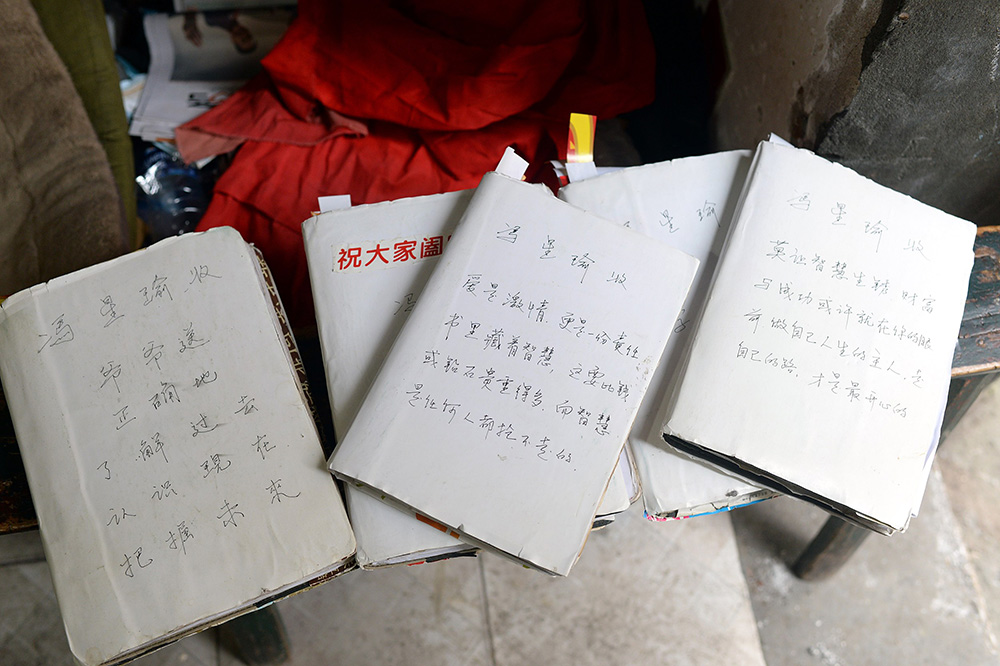 冯星瑜收
爷爷送
正确地
了解过去
认识现在
把握未来
祝大家阖
冯
冯星瑜收
爱是激情,更是一份责任
书里藏着智慧,这要比钱
或钻石贵重得多,而智慧
是任何人都抢不走的.
星瑜
冯星瑜收
莫让智慧生锈,财富
与成功或许就在你的眼
前做自己人生的主人,走
自己的路,才是最开心的